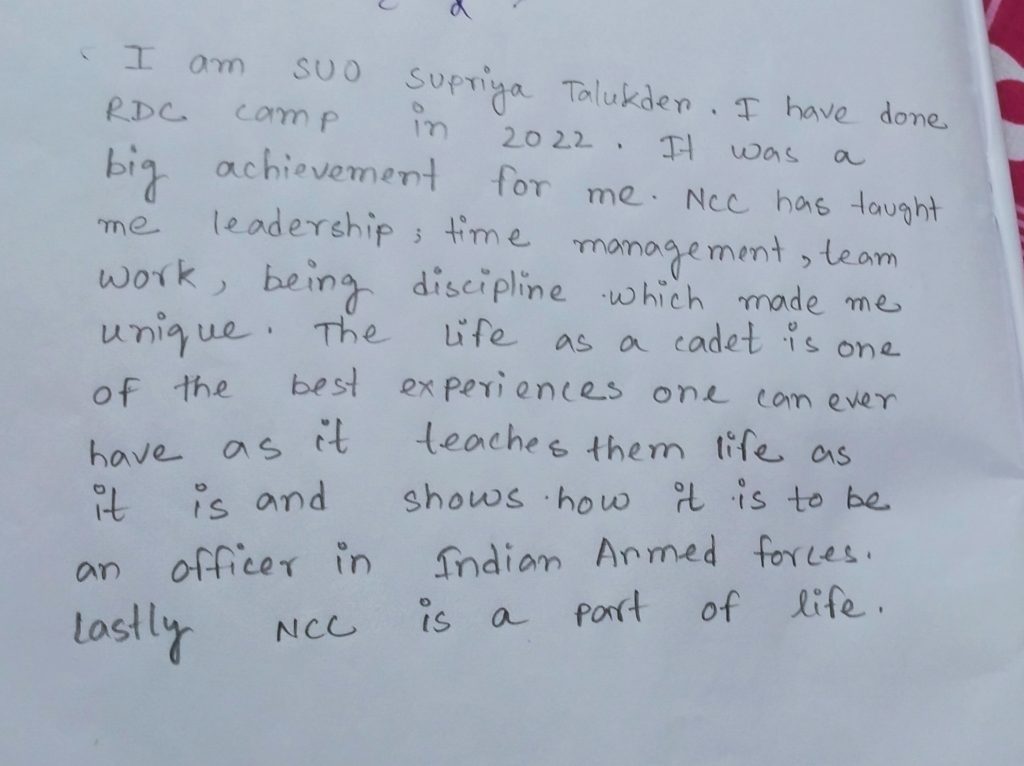 I am SUO Supriya Talukder. I have done
RDC camp in 2022. It was a
big achievement for me. NCC has taught
me leadership, time management, team
work, being discipline which made me
unique. The life as a cadet is one
of the best experiences one can ever
have as it teaches them life as
it is and shows how it is to be
an officer in Indian Armed forces.
Lastly NCC is a part of life.